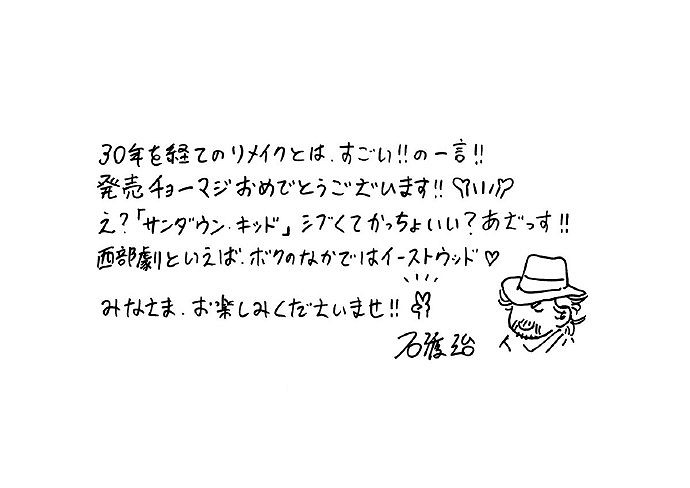 30年を経てのリメイクとは、すごい!!の一言!!
発売チョーマジおめでとうございます!!
え?「サンダウン・キッド」シブくてかっちょいい?あざっす!!
西部劇といえば、ボクのなかではイーストウッド♡
みなさま、お楽しみくださいませ!!
石渡治